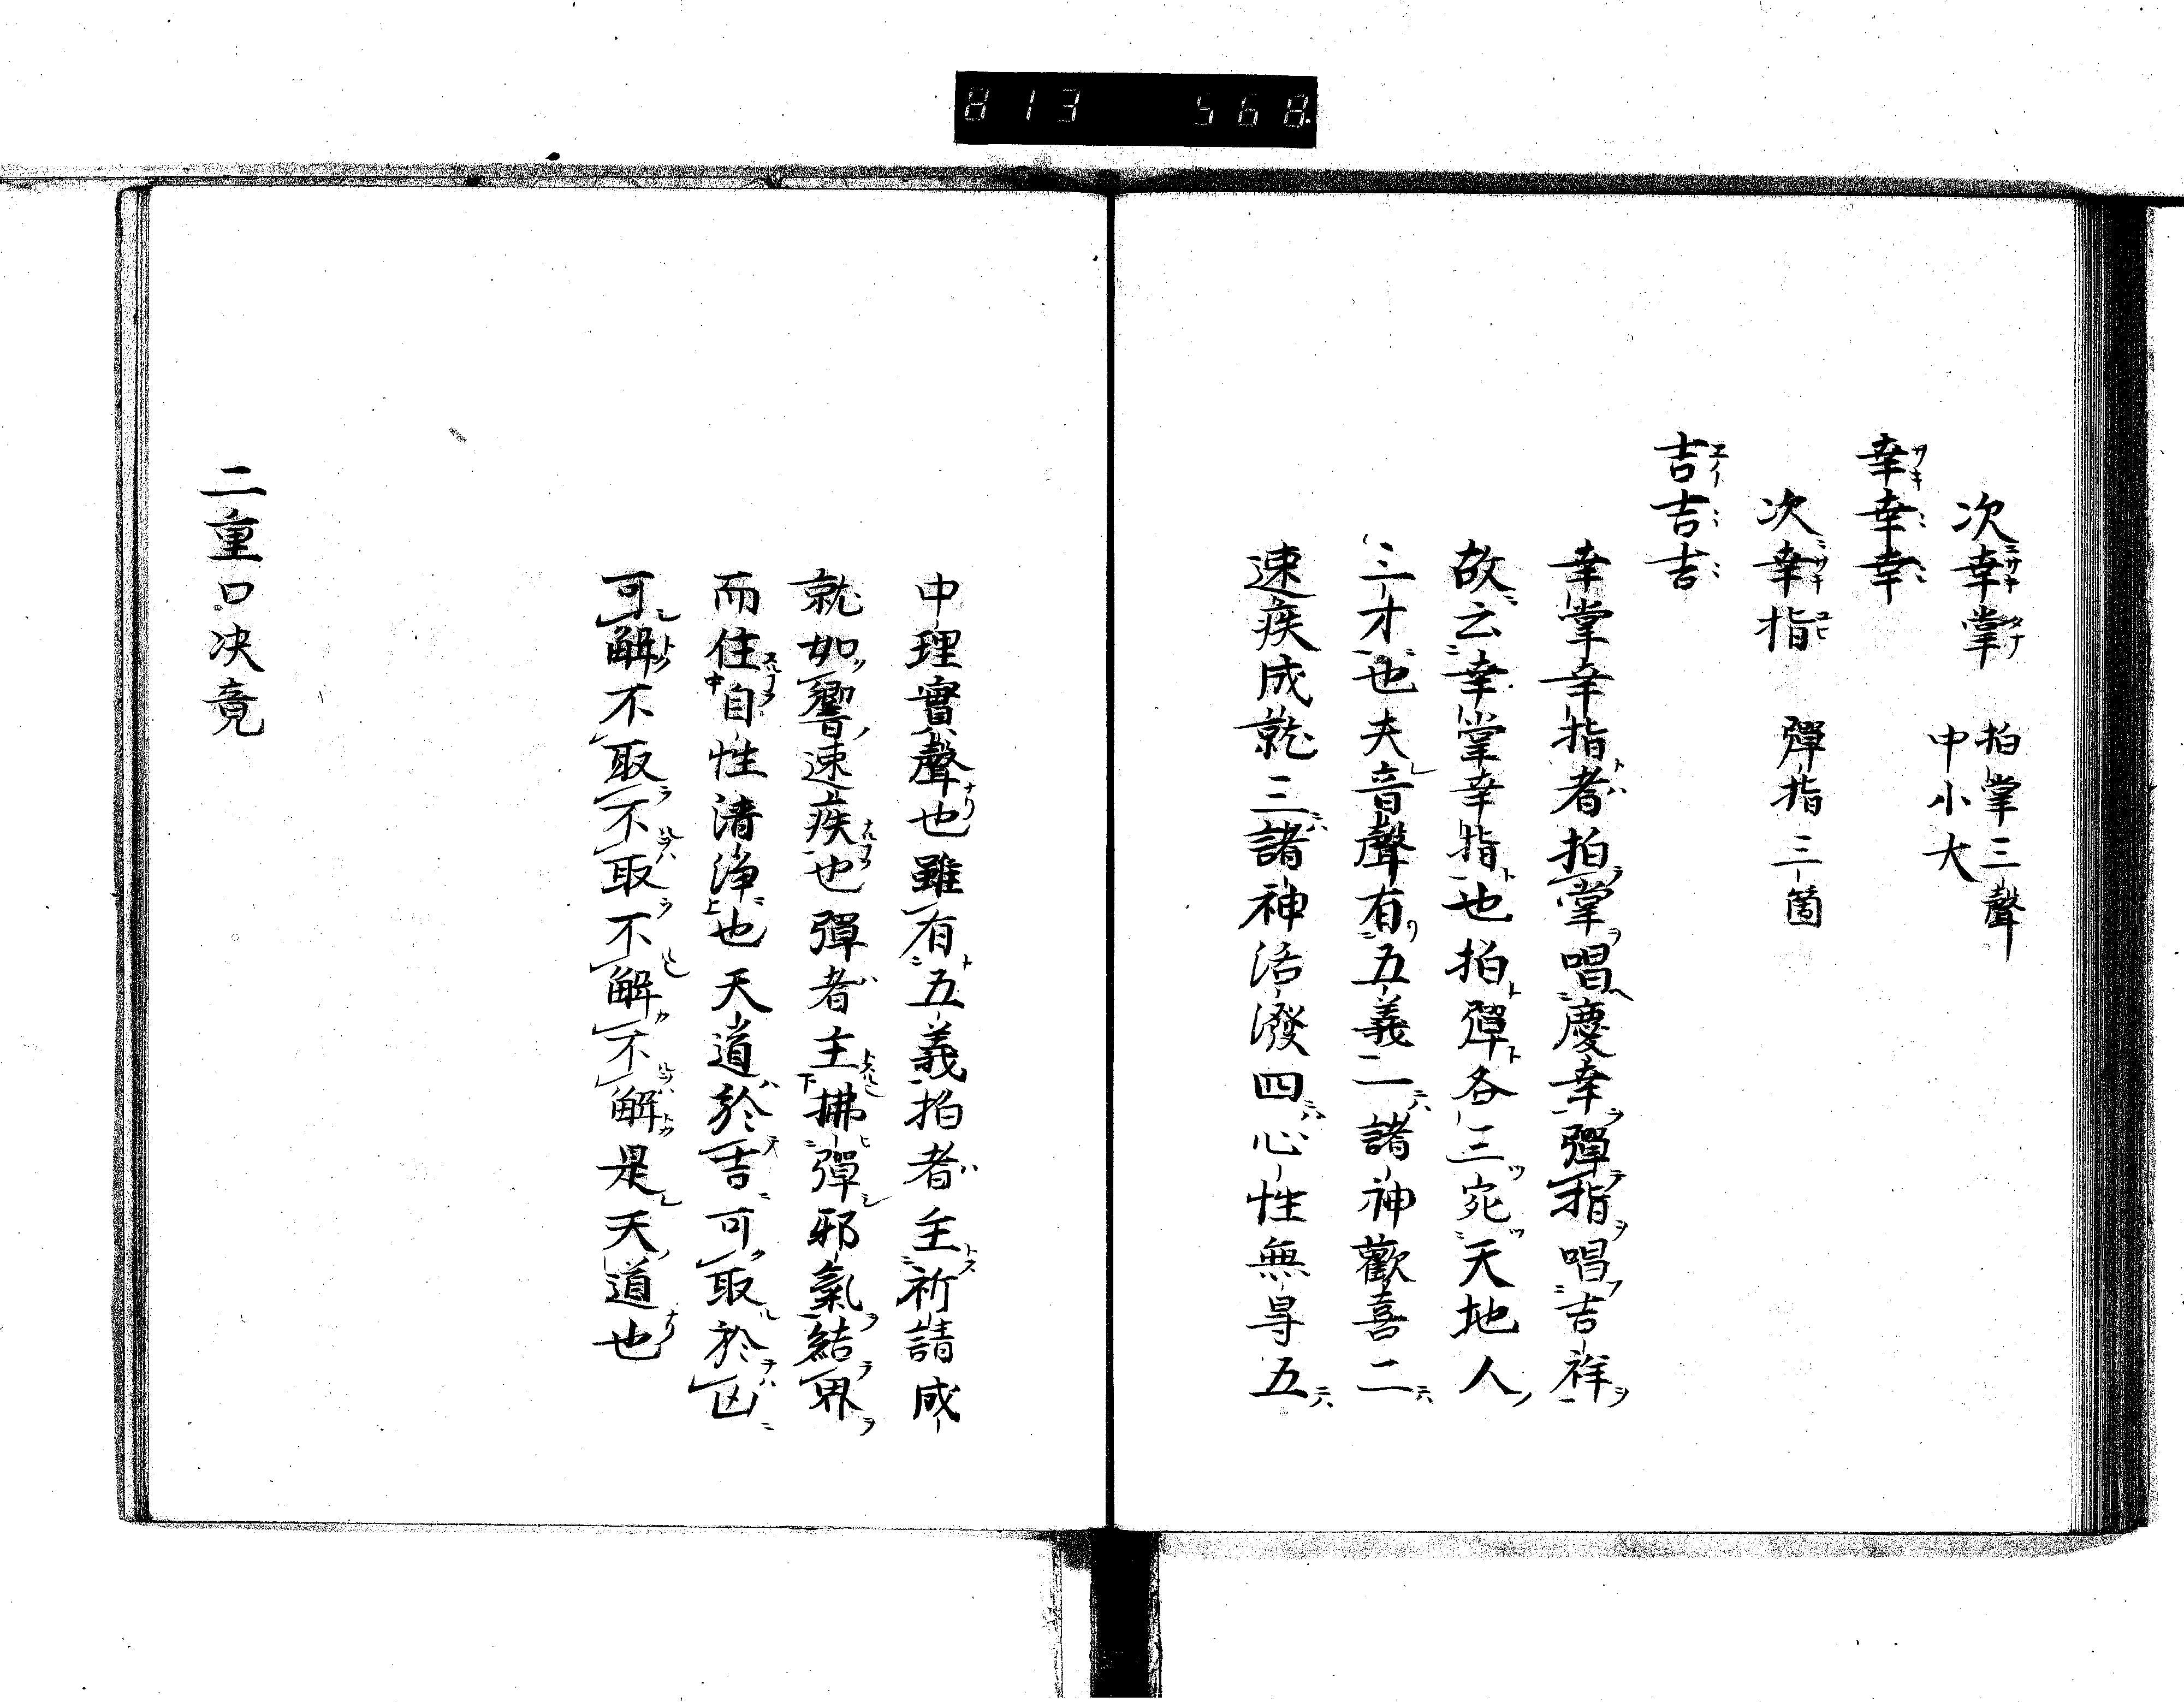 813 568
次幸掌 拍掌三聲
中小大
幸幸幸
次幸指 彈指三箇
吉吉吉
幸掌幸指者拍掌唱慶幸彈指唱吉祥
故云幸掌幸指也拍彈各三宛天地人
三才也夫音聲有五義一諸神歡喜二
速疾成就三諸神活潑四心性無㝵五
中理實聲也雖有五義拍者主祈請成
就如響速疾也彈者主拂彈邪氣結界
而住自性清浄也天道於吉可取於凶
可解不取不取不解不解是天道也
二重口决竟